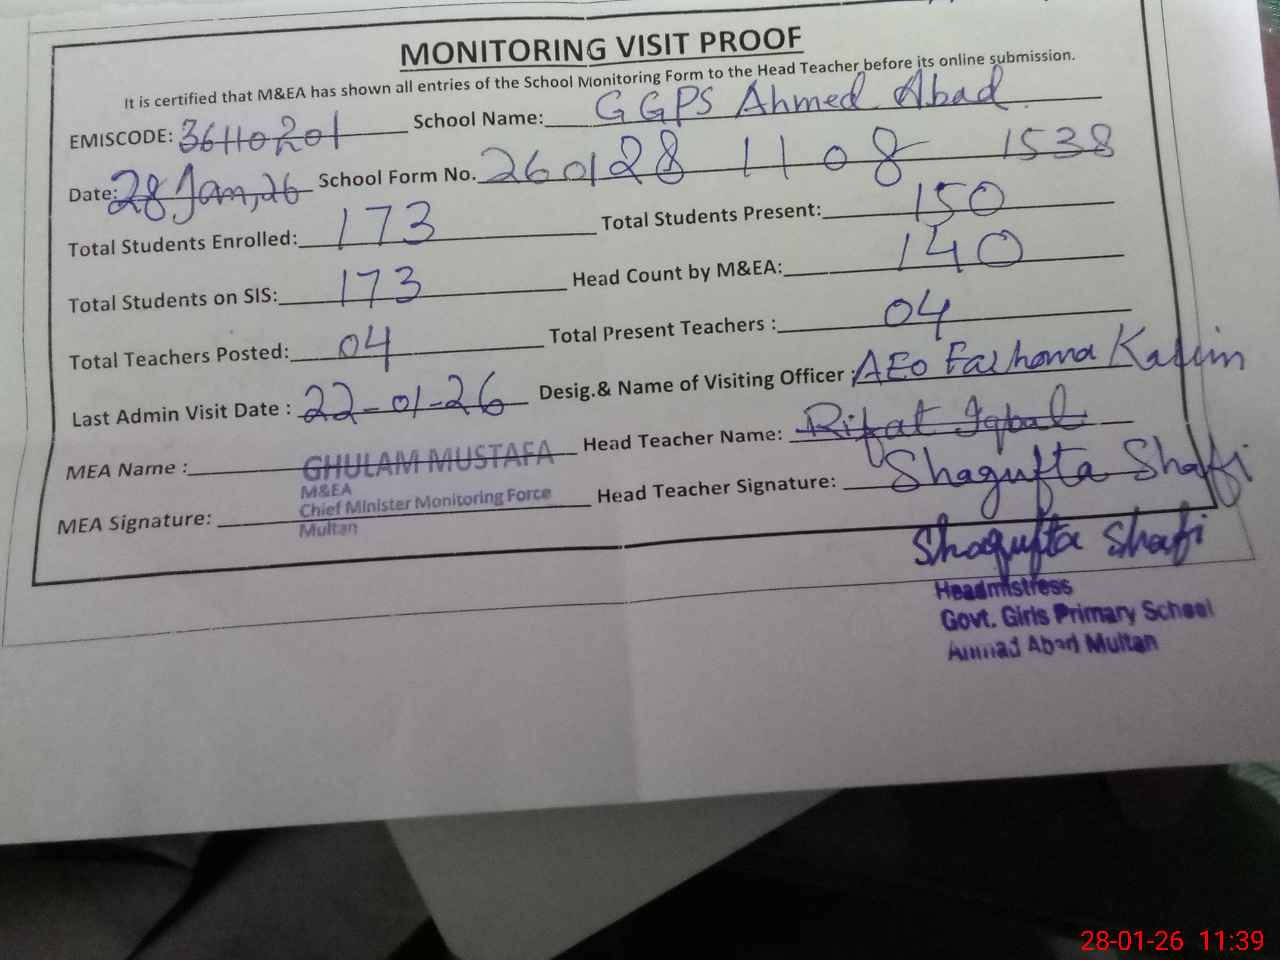 MONITORING VISIT PROOF
It is certified that M&EA has shown all entries of the School Monitoring Form to the Head Teacher before its online submission.
EMISCODE: 36110201 School Name: GGPS Ahmed Abad
Date: 28 Jan, 26 School Form No. 260128 11 08 1538
Total Students Enrolled: 173 Total Students Present: 150
Total Students on SIS: 173 Head Count by M&EA: 140
Total Teachers Posted: 04 Total Present Teachers : 04
Last Admin Visit Date : 22-01-26 Desig.& Name of Visiting Officer : AEO
MEA Name : GHULAM MUSTAFA Head Teacher Name: Rifat Iqbal
M&EA
Chief Minister Monitoring Force
Multan
MEA Signature: Head Teacher Signature: Shagufta Shafi
Shagufta Shafi
Headmistress
Govt. Girls Primary School
Abad Multan
28-01-26 11:39